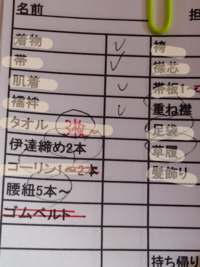 名前 担
着物 レ 袴
帯 レ 襟芯
肌着 レ 帯板1~
襦袢 レ 重ね襟
タオル 3枚~ 足袋
伊達締め2本 草履
コーリン1~2本 髪飾り
腰紐5本~
ゴムベルト
持ち帰り